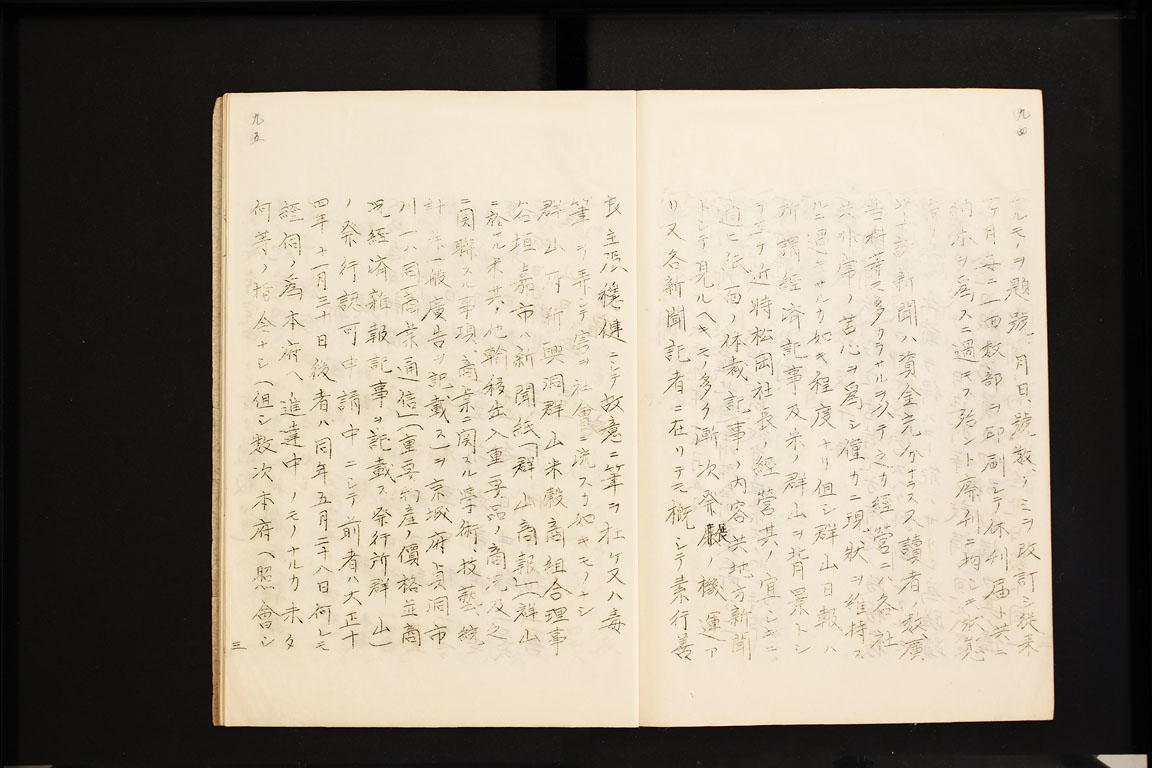 九四
ナルモノヲ題號、月日號数ノミヲ改訂シ従来
一ケ月毎ニ一回数部ヲ印刷シテ休刊届ト共ニ
納本ヲ為スニ過キス殆ント廃刊ニ均シキ状態
新聞ハ資金充分ナラス又讀者ノ放廣
告料等モ多カラサルヲ以テ之カ経営ニハ各社
共非常ノ苦心ヲ為シ僅カニ現状ヲ維持ス
ルニ過キサルカ如キ程度ナリ但シ群山日報ハ
所謂経済記事及米ノ群山ヲ背景トシ
近時松岡社長ノ経営其ノ宜シキニ
適ヒ紙面ノ体裁記事ノ内容共地方新聞
トシテ見ルヘキモノ多ク漸次発展ノ機運ア
リ又各新聞記者ニ在リテモ概シテ素行善
九五
良主張穏健ニシテ故意ニ筆ヲ枉ケ又ハ毒
筆ヲ弄シテ害ヲ社會ニ流スカ如キモノナシ
群山府新興洞群山米穀商組合理事
谷垣嘉市ハ新聞紙「群山商報」(群山
ニ於ケル米其ノ他輸移出入重要品ノ商況及之
ニ関聯スル事項、商業ニ関スル學術、技藝、統
計、一般廣告ヲ記載ス)ヲ京城府貞洞市
川一ハ同「商業通信」(重要物産ノ價格並商
況経済雑報記事ヲ記載ス発行所群山)
ノ発行認可申請中ニシテ前者ハ大正十
四年十一月三十日後者ハ同年五月二十八日何レモ
經伺ノ為本府ヘ進達中ノモノナルカ未タ
何等ノ指令ナシ(但シ数次本府ヘ照會シ
三